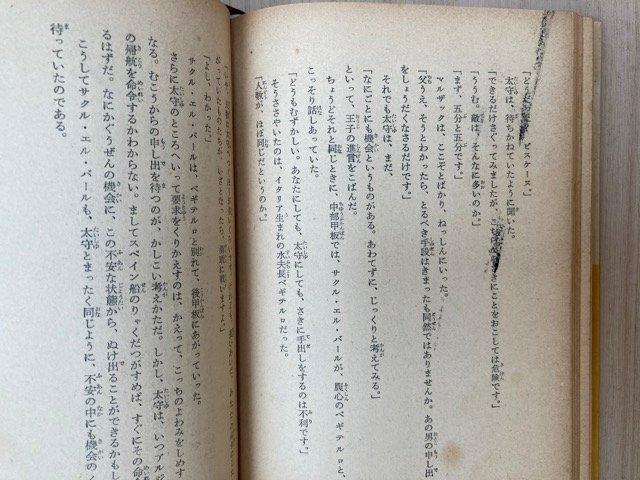 「どう　　　ビスケーヌ。」
太守は、待ちかねていたように聞いた。
「できるだけさぐってみましたが、　　　　きにことをおこしては危険です。」
「ううむ。敵は、そんなに多いのか。」
「まず、五分と五分です。」
マルザックは、ここぞとばかり、ねっしんにいった。
「父うえ、そうとわかったら、とるべき手段はきまったも同然ではありませんか。あの男の申し出
をしょうだくなさるだけです。」
それでも太守は、まだ、
「なにごとにも機会というものがある。あわてずに、じっくりと考えてみる。」
といって、王子の進言をこばんだ。
ちょうどそれと同じときに、中部甲板では、サクル・エル・バールが、腹心のベギテルロと、
こっそり話しあっていた。
「どうもむずかしい。あなたにしても、太守にしても、さきに手出しをするのは不利です。」
そうささやいたのは、イタリア生まれの水夫長ベギテルロだった。
「人数が、ほぼ同じだというのか。」
がっていたものたちが、いざとなったら、
「よし、わかった。」
サクル・エル・バールは、ベギテルロと別れて、後甲板にあがっていった。
さらに太守のところへいって要求をくりかえすのは、かえって、こっちのよわみをしめす
なる。むこうからの申し出を待つのが、かしこい考えかただ。しかし、太守は、いつアルジ
の帰航を命令するかわからない。ましてスペイン船のりゃくだつがすめば、すぐにその命
るはずだ。なにかぐうぜんの機会に、この不安な状態から、ぬけ出ることができるかもし
こうしてサクル・エル・バールも、太守とまったく同じように、不安の中にも機会の
待っていたのである。